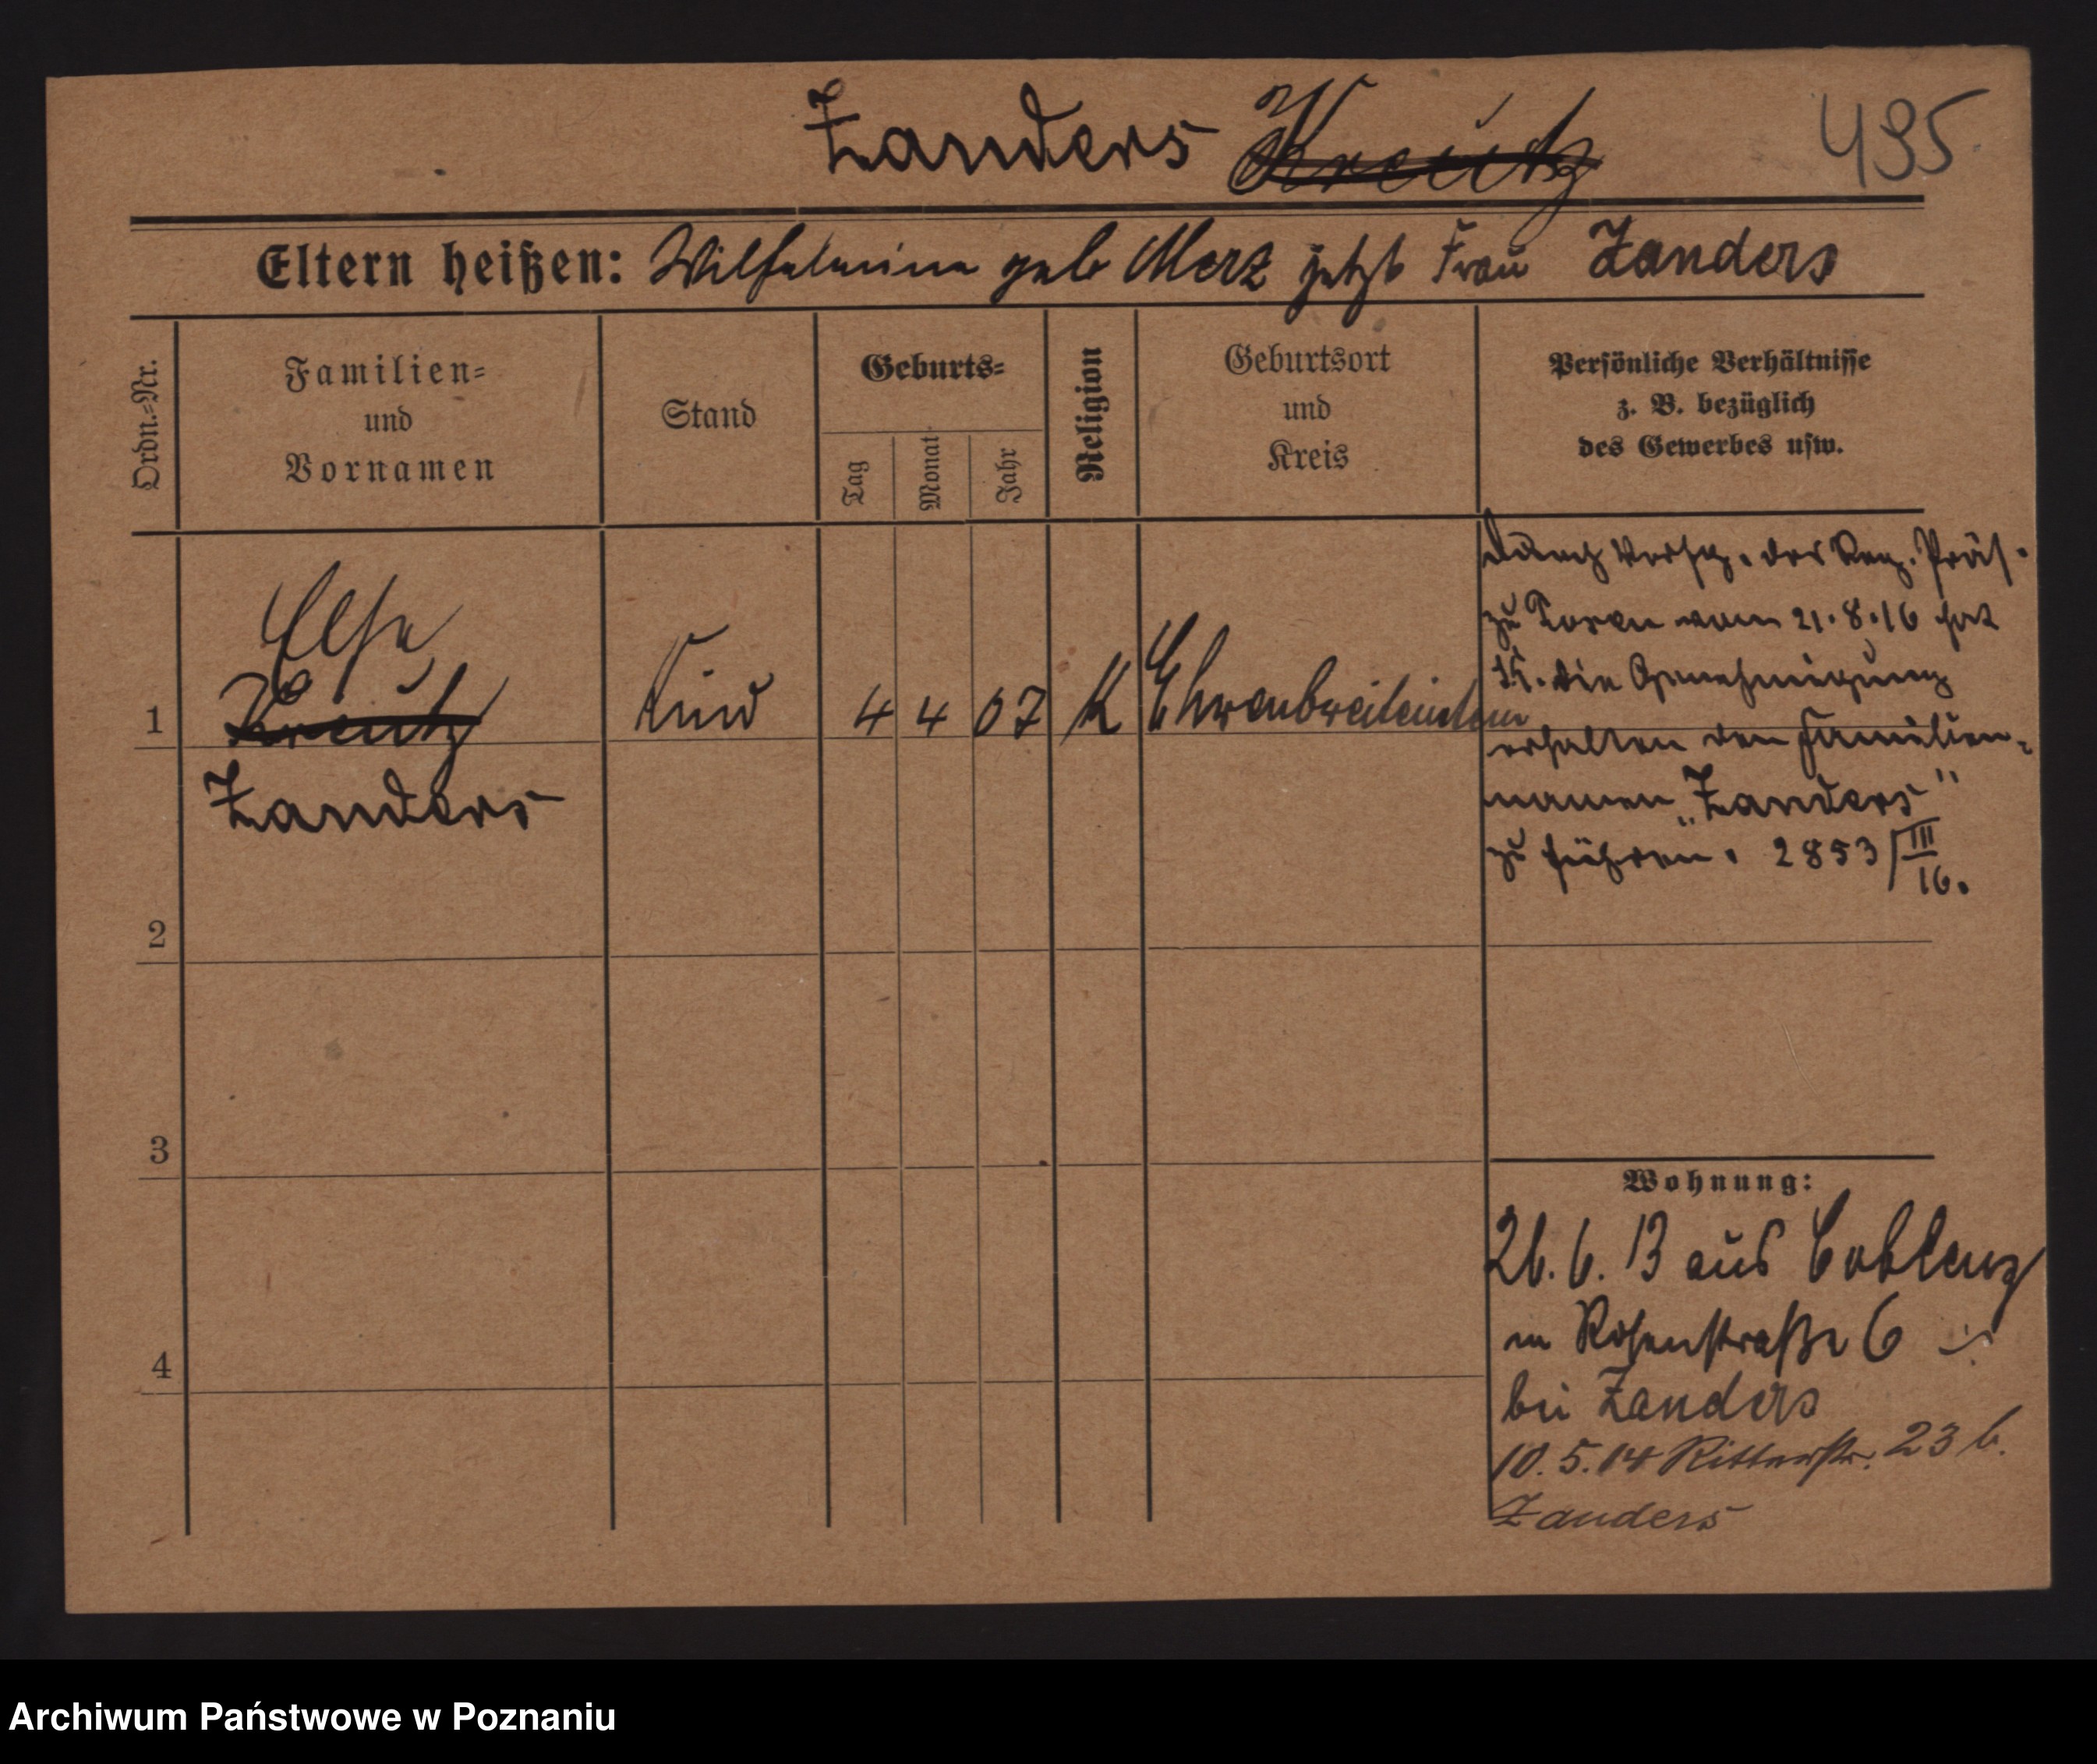 Zanders Kreutz 495
Eltern heißen: Wilhelmine geb Merz jetzt Frau Zanders
Ordn.=Nr.
Familien=
und
Vornamen
Stand
Geburts=
Tag
Monat
Jahr
Religion
Geburtsort
und
Kreis
Persönliche Verhältnisse
z. B. bezüglich
des Gewerbes usw.
1
Else
Kreutz
Zanders
Kind
4 4 07
K
Ehrenbreitenstein
Durch Verfg. des Reg. Präs.
zu Posen vom 21.8.16 hat
K. die Genehmigung
erhalten den Familien-
namen „Zanders"
zu führen. 2853/III
16.
2
3
4
Wohnung:
26.6.13 aus Coblenz
in Rosenstraße 6
bei Zanders
10.5.14 Ritterstr. 23 b.
Zanders
Archiwum Państwowe w Poznaniu